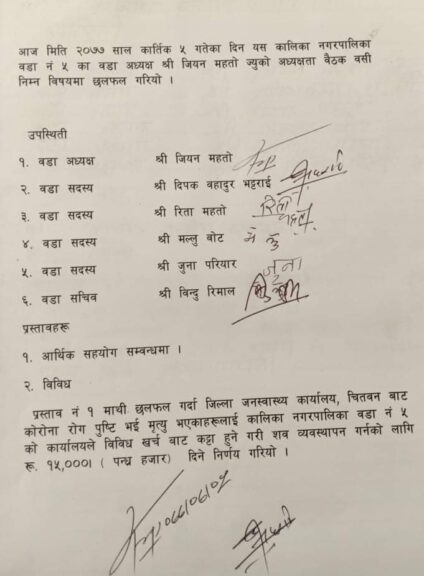 आज मिति २०७७ साल कार्तिक ५ गतेका दिन यस कालिका नगरपालिका
वडा नं ५ का वडा अध्यक्ष श्री जियन महतो ज्युको अध्यक्षता बैठक वसी
निम्न विषयमा छलफल गरियो ।
उपस्थिती
१. वडा अध्यक्ष श्री जियन महतो
२. वडा सदस्य श्री दिपक वहादुर भट्टराई
३. वडा सदस्य श्री रिता महतो रिता
४. वडा सदस्य श्री मल्लु वोट
५. वडा सदस्य श्री जुना परियार जुना
६. वडा सचिव श्री विन्दु रिमाल
प्रस्तावहरू
१. आर्थिक सहयोग सम्वन्धमा ।
२. विविध
प्रस्ताव नं १ माथी छलफल गर्दा जिल्ला जनस्वास्थ्य कार्यालय, चितवन बाट
कोरोना रोग पुष्टि भई मृत्यु भएकाहरूलाई कालिका नगरपालिका वडा नं ५
को कार्यालयले विविध खर्च बाट कट्टा हुने गरी शव व्यवस्थापन गर्नको लागि
रू. १५,०००। ( पन्ध्र हजार) दिने निर्णय गरियो ।